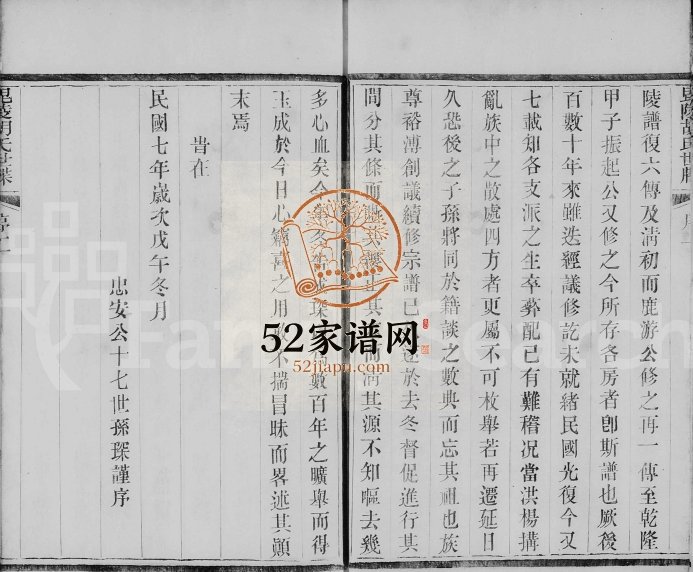 陵譜復六傳及淸初而鹿游公修之再一傳至乾隆
甲子振起公又修之今所存各房者卽斯譜也厥後
百數十年來雖迭經議修訖未就緒民國光復今又
七載知各支派之生卒葬配已有難稽况當洪楊搆
亂族中之散處四方者更屬不可枚舉若再遷延日
久恐後之子孫將同於籍談之數典而忘其祖也族
尊裕溥創議續修宗譜已 於去冬督促進行其
間分其條而 其 其源不知嘔去幾
多心血矣今 冬 琛 數百年之曠舉而得
玉成於今日心竊喜之用 不揣冒昧而畧述其顚
末焉
旹在
民國七年歲次戊午冬月
忠安公十七世孫琛謹序
毘陵胡氏世牒
52家谱网
52jiapu.com